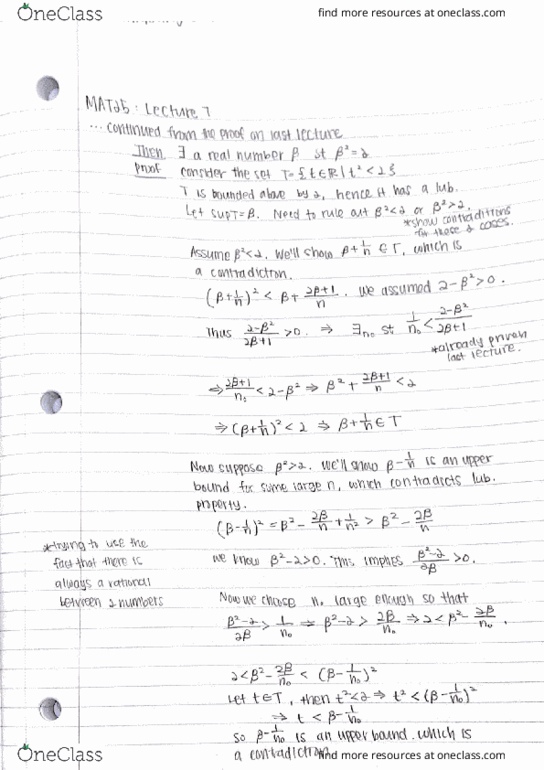 OneClass
find more resources at oneclass.com
MAT25: Lecture 7
... continued from the proof on last lecture
Then ∃ a real number β st β²=2
Proof consider the set T={t∈ℝ|t²<2}
T is bounded above by 2, hence it has a lub.
Let supT=β. Need to rule out β²<2 or β²>2.
*show contradictions
for these 2 cases.
Assume β²<2, We'll show β+1/n ∈ T, which is
a contradiction.
(β+1/n)² < β+ 2β+1/n. We assumed 2-β²>0.
Thus 2-β²/2β+1 >0. ⇒ ∃n₀ st 1/n₀ < 2-β²/2β+1
*already proven
last lecture.
⇒ 2β+1/n₀ < 2-β² ⇒ β²+ 2β+1/n <2
⇒ (β+1/n)² <2 ⇒ β+1/n ∈ T
Now suppose β²>2. We'll show β-1/n is an upper
bound for some large n, which contradicts lub.
property.
(β-1/n)² = β²- 2β/n + 1/n² > β²- 2β/n
*trying to use the
fact that there is
always a rational
between 2 numbers
We know β²-2>0. This implies β²-2/2β >0.
Now we choose n₀ large enough so that
β²-2/2β > 1/n₀ ⇒ β²-2> 2β/n₀ ⇒ 2<β²- 2β/n₀.
2<β²- 2β/n₀ < (β-1/n₀)²
Let t∈T, then t²<2 ⇒ t² < (β-1/n₀)²
⇒ t < β-1/n₀
so β-1/n₀ is an upper bound. which is
a contradiction
OneClass
find more resources at oneclass.com